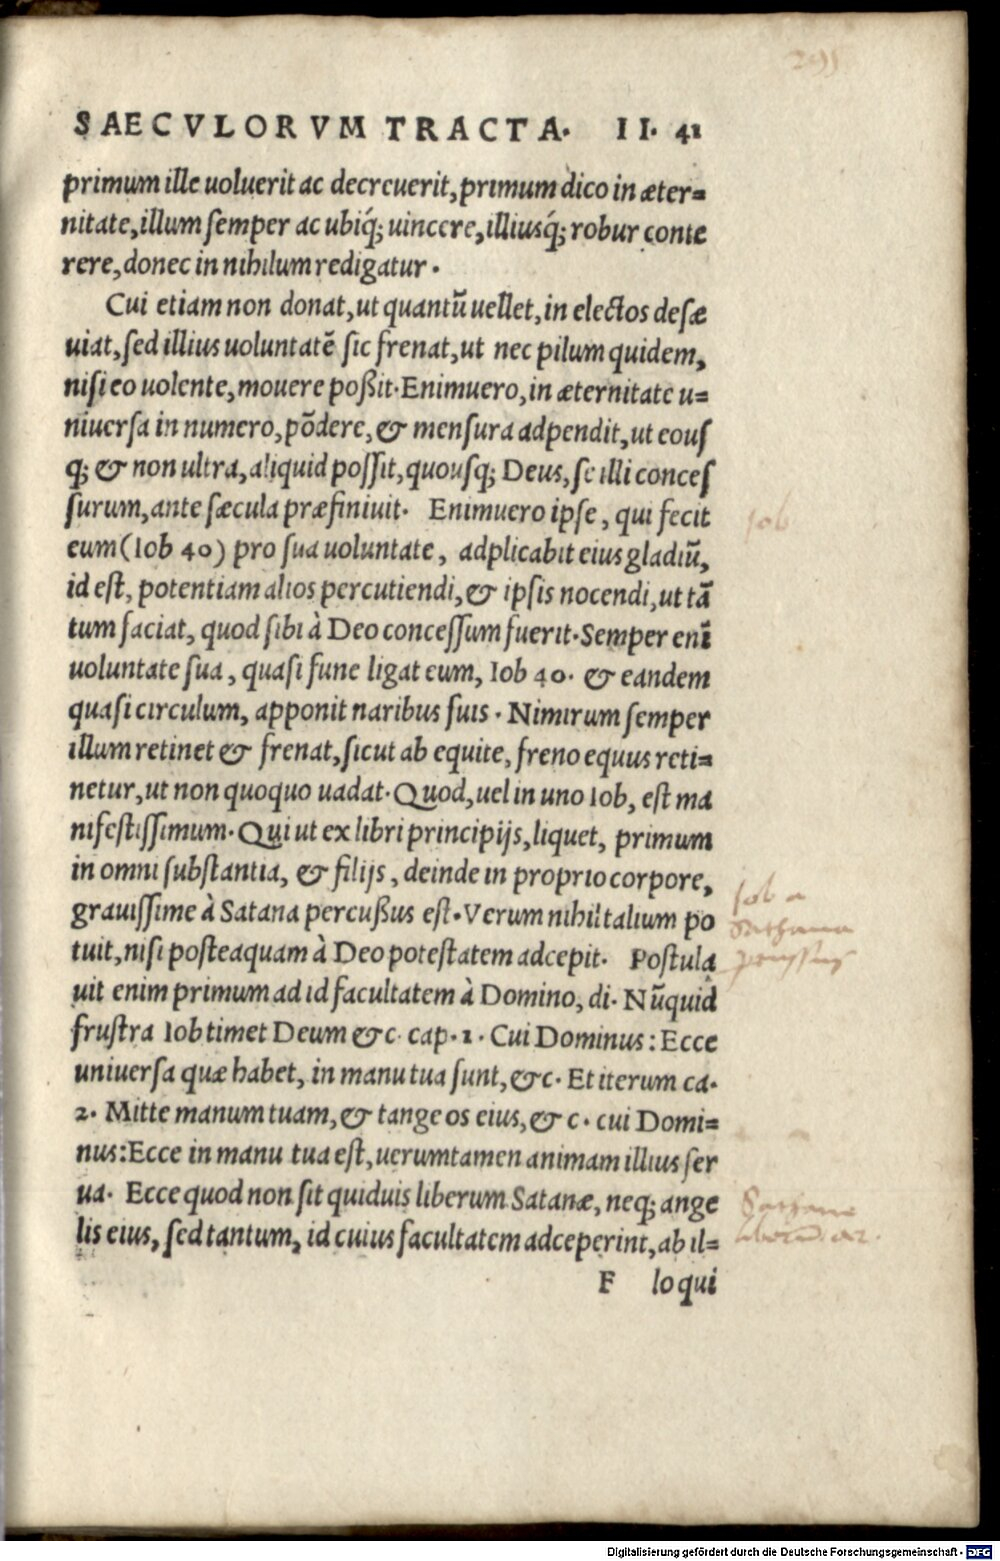 SAECVLORVM TRACTA. II. 41
primum ille uoluerit ac decreuerit, primum dico in æter=
nitate, illum ſemper ac ubiq́; uincere, illiusq́; robur conte
rere, donec in nihilum redigatur.
Cui etiam non donat, ut quantũ uellet, in electos deſæ
uiat, ſed illius uoluntatẽ ſic frenat, ut nec pilum quidem,
niſi eo uolente, mouere poßit. Enimuero, in æternitate u=
niuerſa in numero, põdere, & menſura adpendit, ut eouſ
q; & non ultra, aliquid poſſit, quouſq; Deus, ſe illi conceſ
ſurum, ante ſæcula præfiniuit. Enimuero ipſe, qui fecit
eum (Iob 40) pro ſua uoluntate, adplicabit eius gladiũ,
id eſt, potentiam alios percutiendi, & ipſis nocendi, ut tã
tum faciat, quod ſibi à Deo conceſſum fuerit. Semper enĩ
uoluntate ſua, quaſi fune ligat eum, Iob 40. & eandem
quaſi circulum, apponit naribus ſuis. Nimirum ſemper
illum retinet & frenat, ſicut ab equite, freno equus reti=
netur, ut non quoquo uadat. Quod, uel in uno Iob, eſt ma
nifeſtiſſimum. Qui ut ex libri principijs, liquet, primum
in omni ſubſtantia, & filijs, deinde in proprio corpore,
grauiſſime à Satana percußus eſt. Verum nihil talium po
tuit, niſi poſteaquam à Deo poteſtatem adcepit. Poſtula
uit enim primum ad id facultatem à Domino, di. Nũquid
fruſtra Iob timet Deum &c. cap. 1. Cui Dominus: Ecce
uniuerſa quæ habet, in manu tua ſunt, &c. Et iterum ca.
2. Mitte manum tuam, & tange os eius, & c. cui Domi=
nus: Ecce in manu tua eſt, uerumtamen animam illius ſer
ua. Ecce quod non ſit quiduis liberum Satanæ, neq; ange
lis eius, ſed tantum, id cuius facultatem adceperint, ab il=
F lo qui
Iob
Iob a
Sathana
Sathane
Digitalisierung gefördert durch die Deutsche Forschungsgemeinschaft - DFG